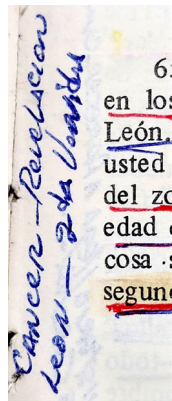 Cancer - Revelacion
Leon - 2da Venida
6:
en los
León,
usted
del zo
edad
cosa
segun